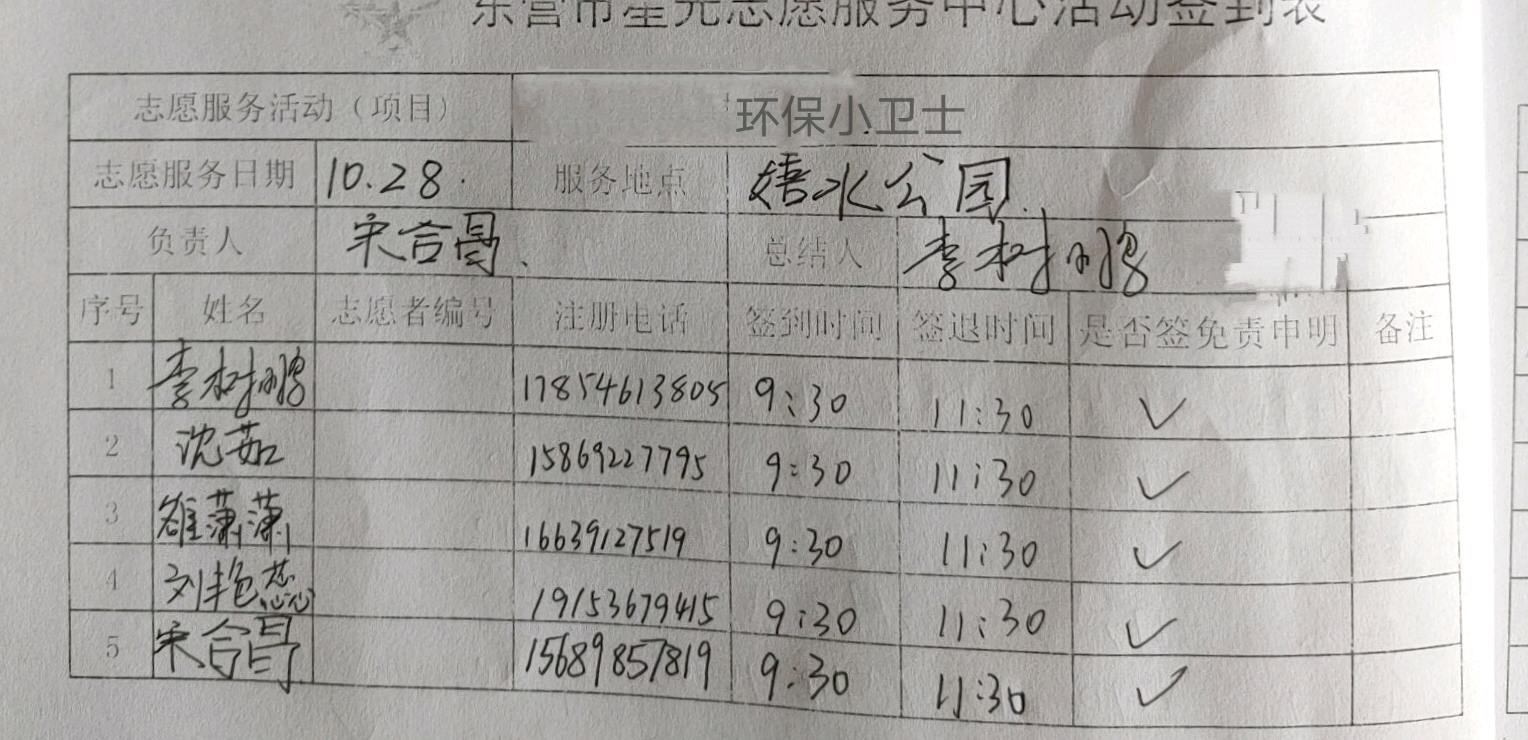 东营市星光志愿服务中心活动签到表
志愿服务活动（项目） 环保小卫士
志愿服务日期 10.28. 服务地点 嬉水公园
负责人 宋合昌 总结人 李树鹏
序号 姓名 志愿者编号 注册电话 签到时间 签退时间 是否签免责申明 备注
1 李树鹏 17854613805 9:30 11:30 ✓
2 沈茹 15869227795 9:30 11:30 ✓
3 潇潇 16639127519 9:30 11:30 ✓
4 刘艳蕊 19153679415 9:30 11:30 ✓
5 宋合昌 15689857819 9:30 11:30 ✓